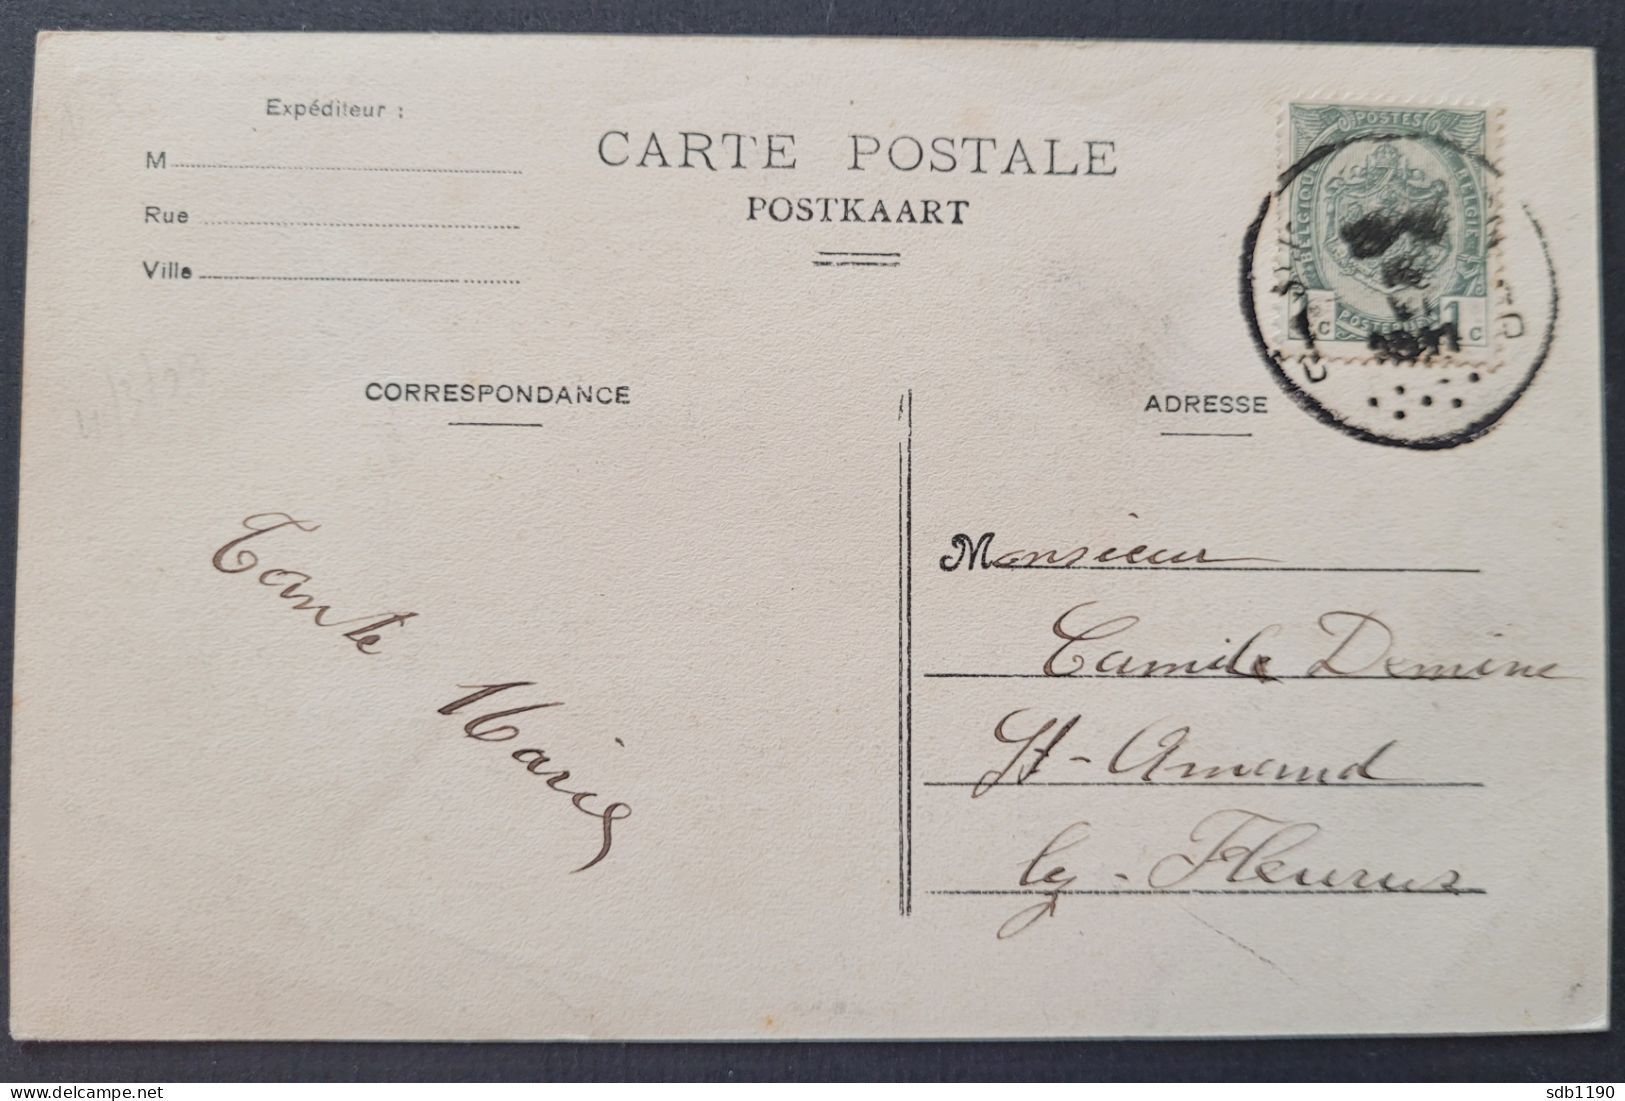 Expéditeur :
M
Rue
Ville
CARTE POSTALE
POSTKAART
POSTES
BELGIQUE
BELGIË
1 C
1 C
CORRESPONDANCE
ADRESSE
Tante
Marie
Monsieur
Camile Demine
St-Amand
lez-Fleurus
sdb1190